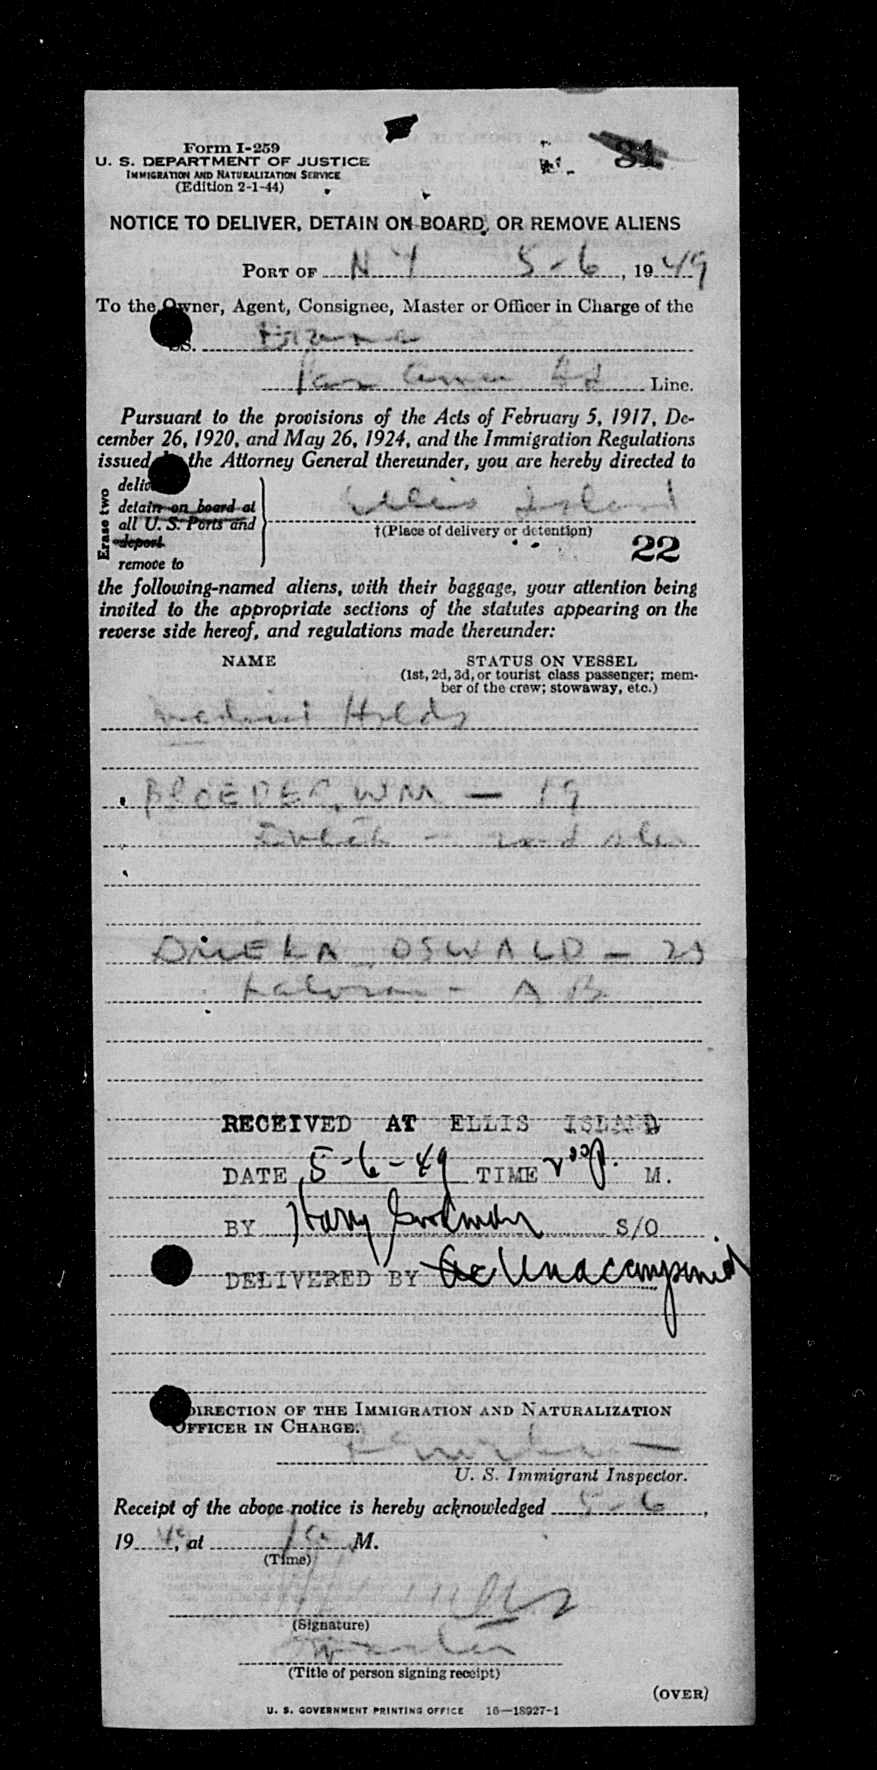 Form I-259
31
U. S. DEPARTMENT OF JUSTICE
IMMIGRATION AND NATURALIZATION SERVICE
(Edition 2-1-44)
NOTICE TO DELIVER, DETAIN ON BOARD, OR REMOVE ALIENS
PORT OF N Y 5-6, 1949
To the Owner, Agent, Consignee, Master or Officer in Charge of the
SS.
Line.
Pursuant to the provisions of the Acts of February 5, 1917, De-
cember 26, 1920, and May 26, 1924, and the Immigration Regulations
issued the Attorney General thereunder, you are hereby directed to
Erase two
detain on board at
all U. S. Ports and
deport
remove to
Ellis Island
†(Place of delivery or detention)
22
the following-named aliens, with their baggage, your attention being
invited to the appropriate sections of the statutes appearing on the
reverse side hereof, and regulations made thereunder:
NAME STATUS ON VESSEL
(1st, 2d, 3d, or tourist class passenger; mem-
ber of the crew; stowaway, etc.)
Medical Holds
BROEDER, WM — 19
OSWALD —
— A B
RECEIVED AT ELLIS ISLAND
DATE 5-6-49 TIME P. M.
BY Harry S/O
DELIVERED BY Unaccompanied
DIRECTION OF THE IMMIGRATION AND NATURALIZATION
OFFICER IN CHARGE.
U. S. Immigrant Inspector.
Receipt of the above notice is hereby acknowledged 5-6,
19, at M.
(Time)
(Signature)
(Title of person signing receipt)
(OVER)
U. S. GOVERNMENT PRINTING OFFICE 16—18927-1